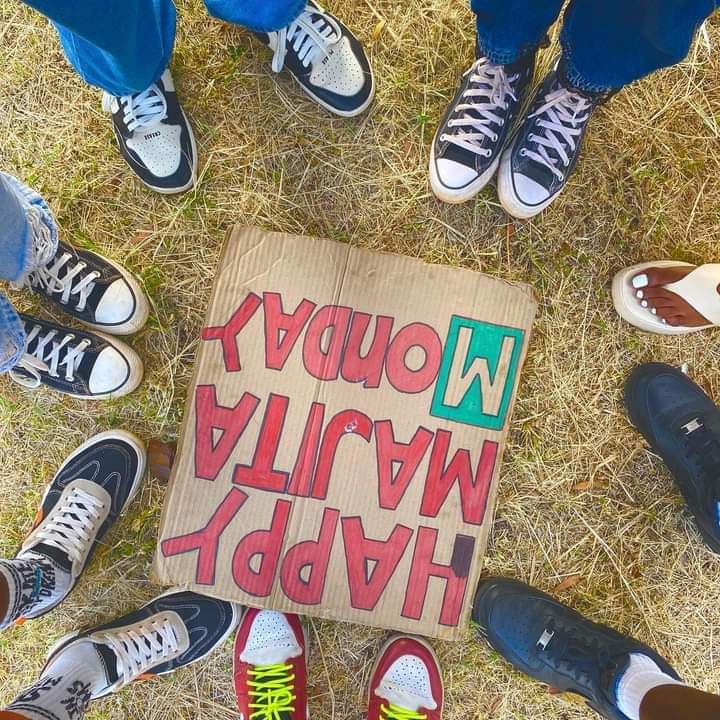 HAPPY
MAJITA
MONDAY